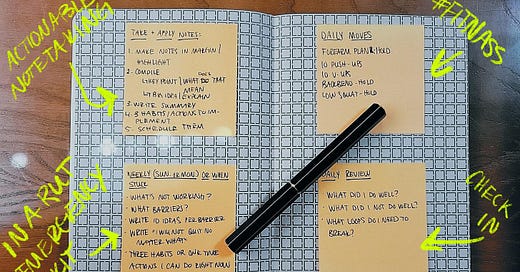 ACTIONABLE
NOTETAKING
TAKE + APPLY NOTES:
1. MAKE NOTES IN MARGIN/
HIGHLIGHT
2. COMPILE
↳ KEY POINT / WHAT DOES THAT
MEAN
↳ BIG IDEAS / EXPLAIN
3. WRITE SUMMARY
4. 3 HABITS/ACTIONS TO IM-
PLEMENT
5. SCHEDULE THEM
#FITNASS
DAILY MOVES
FOREARM PLANK HOLD
10 PUSH-UPS
10 V-UPS
BACKBEND-HOLD
LOW SQUAT-HOLD
IN A RUT
EMERGENCY
KIT
WEEKLY (SUN. OR MON) OR WHEN
STUCK
- WHAT'S NOT WORKING?
- WHAT BARRIERS?
- WRITE 10 IDEAS PER BARRIER
- WRITE "I WILL NOT QUIT NO
MATTER WHAT"
- THREE HABITS OR ONE TIME
ACTIONS I CAN DO RIGHT NOW
CHECK
IN
DAILY REVIEW
- WHAT DID I DO WELL?
- WHAT DID I NOT DO WELL?
- WHAT LOOPS DO I NEED TO
BREAK?